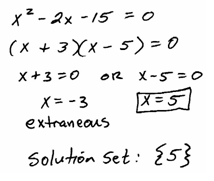 x² - 2x - 15 = 0
(x + 3)(x - 5) = 0
x + 3 = 0 OR x - 5 = 0
x = -3 x = 5
extraneous
Solution set: {5}